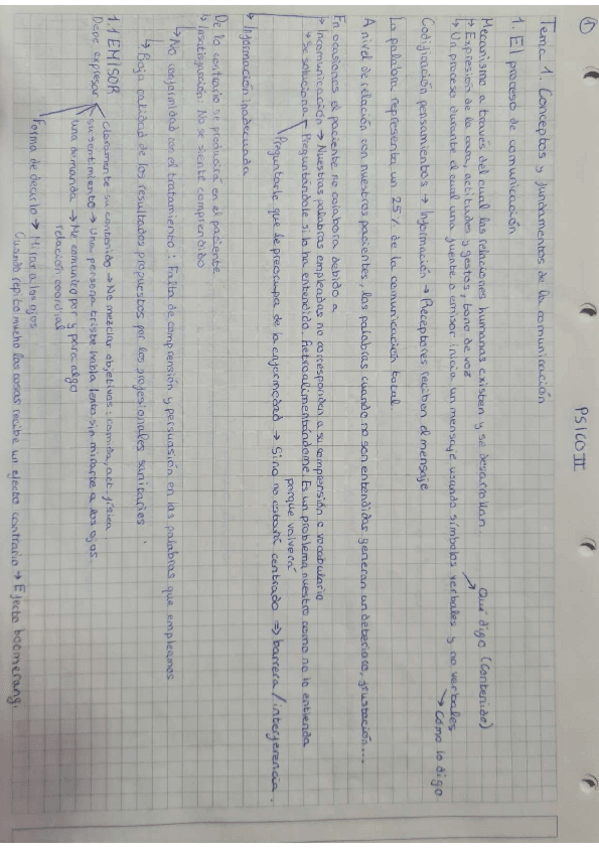 ① PSICO II
Tema 1. Conceptos y fundamentos de la comunicación
1. El proceso de comunicación
Mecanismo a través del cual las relaciones humanas existen y se desarrollan
→ Expresión de la cara, actitudes y gestos, tono de voz
Qué digo (contenido)
→ Un proceso durante el cual una fuente o emisor inicia un mensaje usando símbolos verbales y no verbales
→ Cómo lo digo
Codificación pensamientos → Información → Receptores reciben el mensaje
La palabra representa un 25% de la comunicación total
A nivel de relación con nuestros pacientes, las palabras cuando no son entendidas generan un deterioro, frustación...
En ocasiones el paciente no colabora debido a
→ Incomunicación → Nuestras palabras empleadas no corresponden a su comprensión o vocabulario
→ Se soluciona → Preguntándole si lo ha entendido. Retroalimentándome Es un problema nuestro como no lo entienda
porque volverá
Preguntarle que le preocupa de la enfermedad → Sino no estará centrado ⇒ barrera / interferencia.
↳ Información inadecuada
De lo contrario se producirá en el paciente
↳ Insatisfacción: No se siente comprendido
↳ No conformidad con el tratamiento: Falta de comprensión y persuasión en las palabras que empleamos
↳ Baja calidad de los resultados propuestos por los profesionales sanitarios
1.1 EMISOR
Debe expresar
Claramente su contenido → No mezclar objetivos: comida, act. física
su sentimiento → Una persona triste habla lenta sin mirarte a los ojos
una demanda → Me comunico por y para algo
relación coordial
Forma de decirlo → Mirar a los ojos
Cuando repito mucho las cosas recibe un efecto contrario → Efecto boomerang.